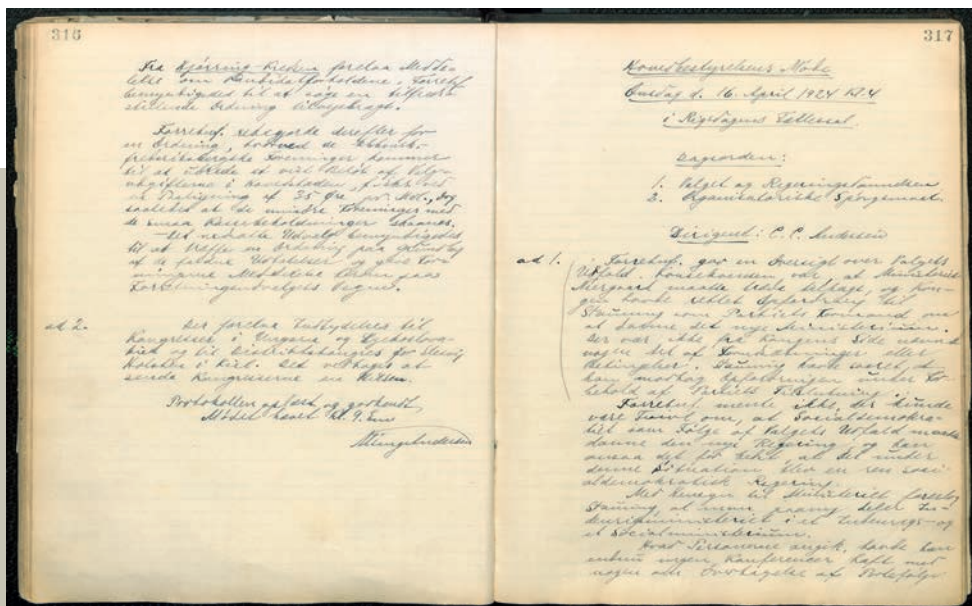 316
Fra Hjørring-Kredsen forelaa Medde-
lelse om Kandidatforholdene. Forretuf.
bemyndigedes til at søge en tilfreds-
stillende Ordning tilvejebragt.
Forretuf. redegjorde derefter for
en Ordning, hvorved de
frederiksbergske Foreninger kommer
til at udrede et vist Beløb af Valg-
udgifterne i Hovedstaden,
en Paaligning af 35 Øre pr. Medl., dog
saaledes at de mindre Foreninger med
de smaa Kassebeholdninger skaanes.
Det nedsatte Udvalg bemyndigedes
til at træffe en Ordning paa Grundlag
af de faldne Udtalelser og give Fore-
ningerne Meddelelse herom paa
Forretningsudvalgets Vegne.
ad 2.
Der forelaa Indbydelse til
Kongresser i Ungarn og Tjekoslova-
kiet og til Distriktskongres for Slesvig
Holsten i Kiel. Det vedtoges at
sende Kongresserne en Hilsen.
Protokollen oplæst og godkendt.
Mødet hævet Kl. 9.
Alsing Andersen
317
Hovedbestyrelsens Møde
Onsdag d. 16. April 1924 Kl. 4
i Rigsdagens Fællessal.
Dagsorden:
1. Valget og Regeringsdannelsen
2. Organisatoriske Spørgsmaal.
Dirigent: C. C. Andersen
ad 1.
Forretuf. gav en Oversigt over Valgets
Udfald. Konsekvensen var, at Ministeriet
Neergaard maatte træde tilbage, og Kon-
gen havde rettet Opfordring til
Stauning som Partiets Formand om
at danne det nye Ministerium.
Der var ikke fra Kongens Side nævnt
nogen Art af Forudsætninger eller
Betingelser. Stauning havde svaret, at
han modtog Opfordringen under For-
behold af Partiets Tilslutning.
Forretuf. mente ikke, der kunde
være Tvivl om, at Socialdemokra-
tiet som Følge af Valgets Udfald maatte
danne den nye Regering, og han
ansaa det for rent, at det under
denne Situation blev en ren soci-
aldemokratisk Regering.
Med Hensyn til Ministeriet foreslog
Stauning, at man paany deler In-
denrigsministeriet i et Indenrigs- og
et Socialministerium.
Hvad Personerne angik, havde han
endnu ingen Konferencer haft med
nogen om Overtagelse af Portefølje